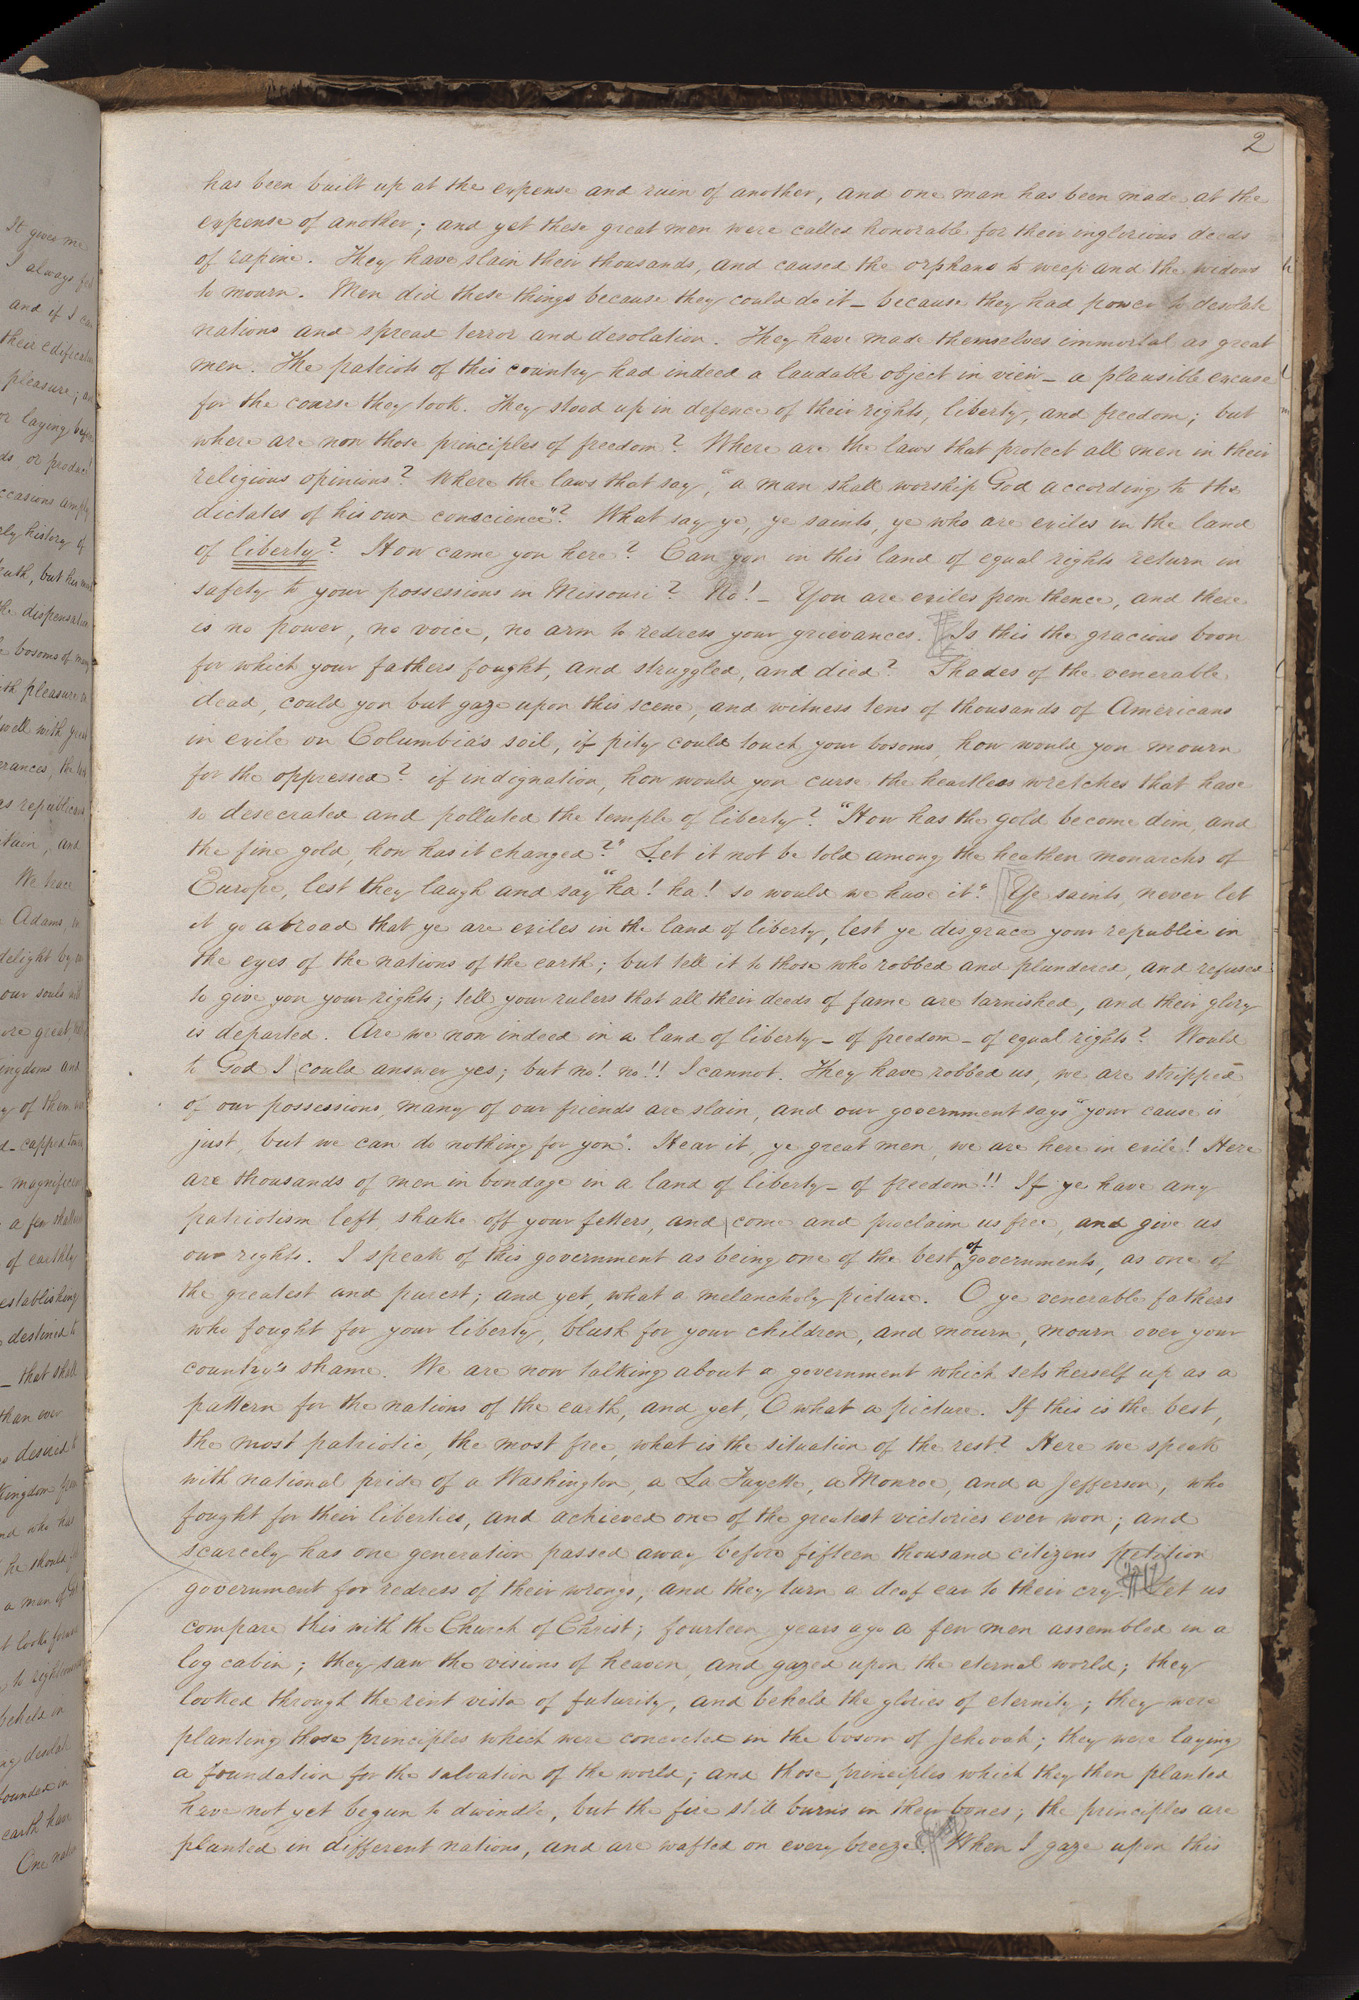 2
has been built up at the expense and ruin of another, and one man has been made at the
expense of another; and yet these great men were called honorable for their inglorious deeds
of rapine. They have slain their thousands, and caused the orphans to weep and the widows
to mourn. Men did these things because they could do it – because they had power to desolate
nations and spread terror and desolation. They have made themselves immortal as great
men. The patriots of this country had indeed a laudable object in view – a plausible excuse
for the course they took. They stood up in defence of their rights, liberty, and freedom; but
where are now those principles of freedom? Where are the laws that protect all men in their
religious opinions? Where the laws that say, "a man shall worship God according to the
dictates of his own conscience"? What say ye, ye saints, ye who are exiles in the land
of liberty? How came you here? Can you in this land of equal rights return in
safety to your possessions in Missouri? No! – You are exiles from thence, and there
is no power, no voice, no arm to redress your grievances. Is this the gracious boon
for which your fathers fought, and struggled, and died? Shades of the venerable
dead, could you but gaze upon this scene, and witness tens of thousands of Americans
in exile on Columbia's soil, if pity could touch your bosoms, how would you mourn
for the oppressed? if indignation, how would you curse the heartless wretches that have
so desecrated and polluted the temple of liberty? "How has the gold become dim, and
the fine gold, how has it changed?" Let it not be told among the heathen monarchs of
Europe, lest they laugh and say "ha! ha! so would we have it". Ye saints, never let
it go abroad that ye are exiles in the land of liberty, lest ye disgrace your republic in
the eyes of the nations of the earth; but tell it to those who robbed and plundered, and refused
to give you your rights; tell your rulers that all their deeds of fame are tarnished, and their glory
is departed. Are we now indeed in a land of liberty – of freedom – of equal rights? Would
to God I could answer yes; but no! no!! I cannot. They have robbed us, we are stripped
of our possessions, many of our friends are slain, and our government says "your cause is
just, but we can do nothing for you". Hear it, ye great men, we are here in exile! Here
are thousands of men in bondage in a land of liberty – of freedom!! If ye have any
patriotism left, shake off your fetters, and come and proclaim us free, and give us
our rights. I speak of this government as being one of the best of governments, as one of
the greatest and purest; and yet, what a melancholy picture. O ye venerable fathers
who fought for your liberty, blush for your children, and mourn, mourn over your
country's shame. We are now talking about a government which sets herself up as a
pattern for the nations of the earth, and yet, O what a picture. If this is the best,
the most patriotic, the most free, what is the situation of the rest? Here we speak
with national pride of a Washington, a La Fayette, a Monroe, and a Jefferson, who
fought for their liberties, and achieved one of the greatest victories ever won; and
scarcely has one generation passed away before fifteen thousand citizens petition
government for redress of their wrongs, and they turn a deaf ear to their cry. Let us
compare this with the Church of Christ; fourteen years ago a few men assembled in a
log cabin; they saw the visions of heaven, and gazed upon the eternal world; they
looked through the rent vista of futurity, and beheld the glories of eternity; they were
planting those principles which were concocted in the bosom of Jehovah; they were laying
a foundation for the salvation of the world; and those principles which they then planted
have not yet begun to dwindle, but the fire still burns in their bones; the principles are
planted in different nations, and are wafted on every breeze. When I gaze upon this